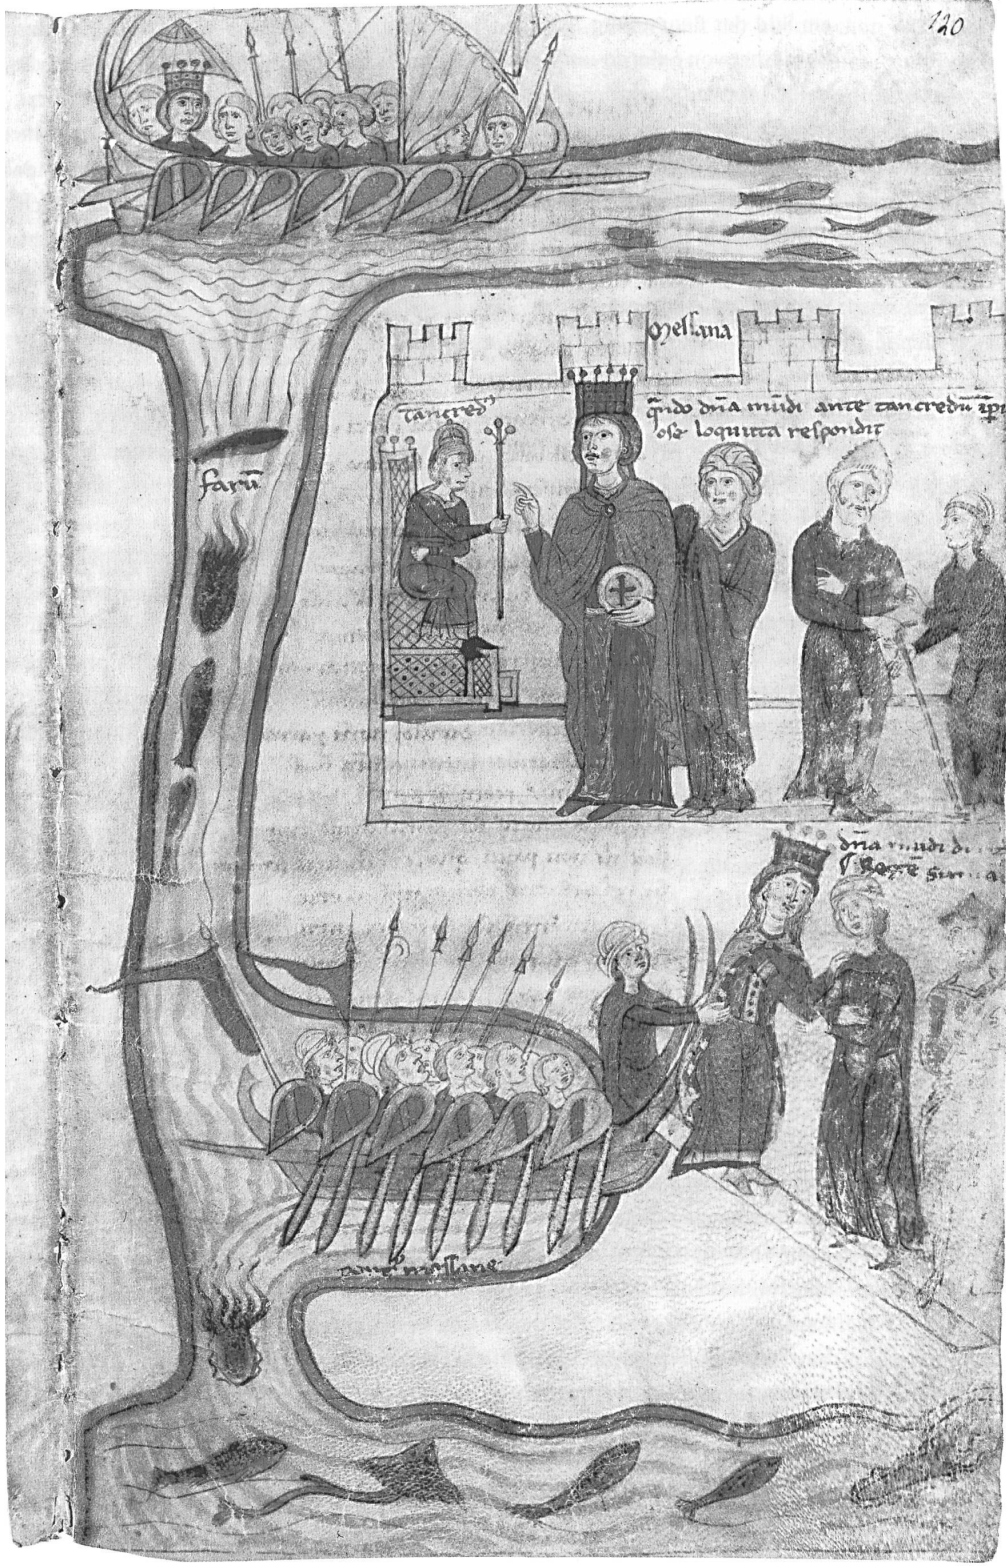 120
Messana
tancred᷒
qn̄do dn̄a mūdi ante tancredū
ose loquuta respondit
farū
dn̄a mūdi
Regē
messane